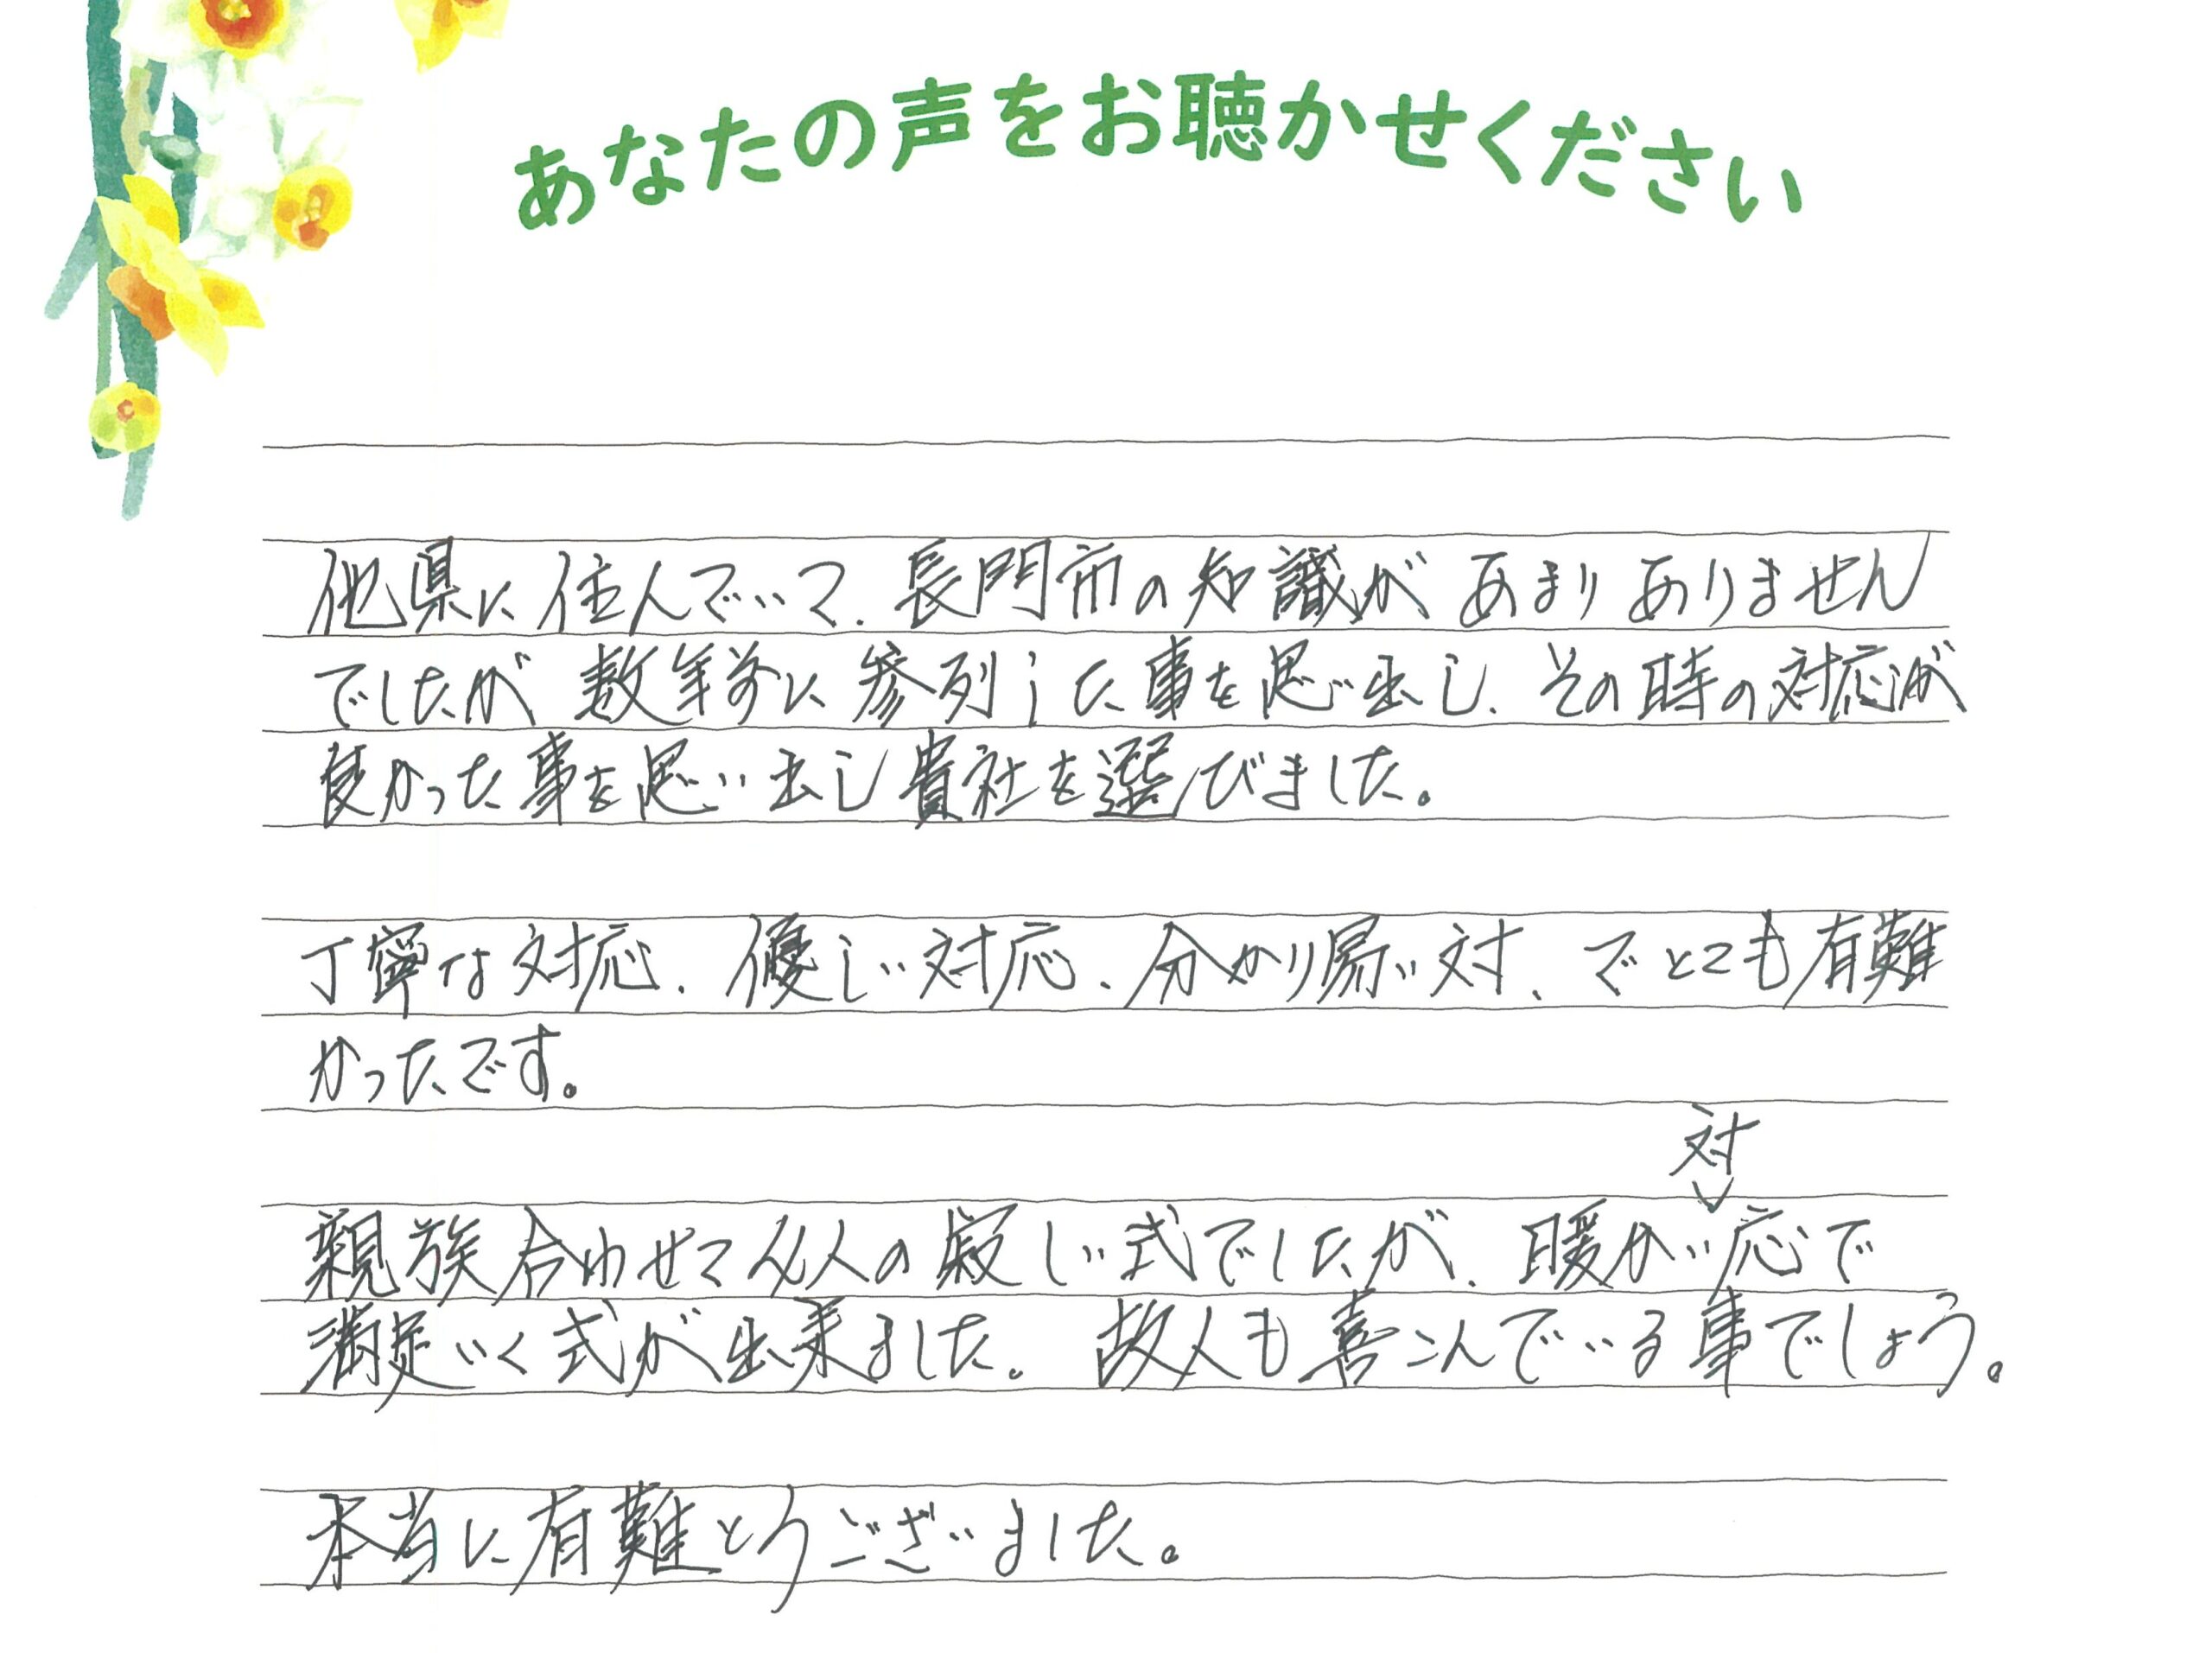 あなたの声をお聴かせください
他県に住んでいて、長門市の知識があまりありません
でしたが数年前に参列した事を思い出し、その時の対応が
良かった事を思い出し貴社を選びました。
丁寧な対応、優しい対応、分かり易い対、でとても有難
かったです。
対
親族合わせて4人の寂しい式でしたが、暖かい応で
満足いく式が出来ました。故人も喜こんでいる事でしょう。
本当に有難とうございました。